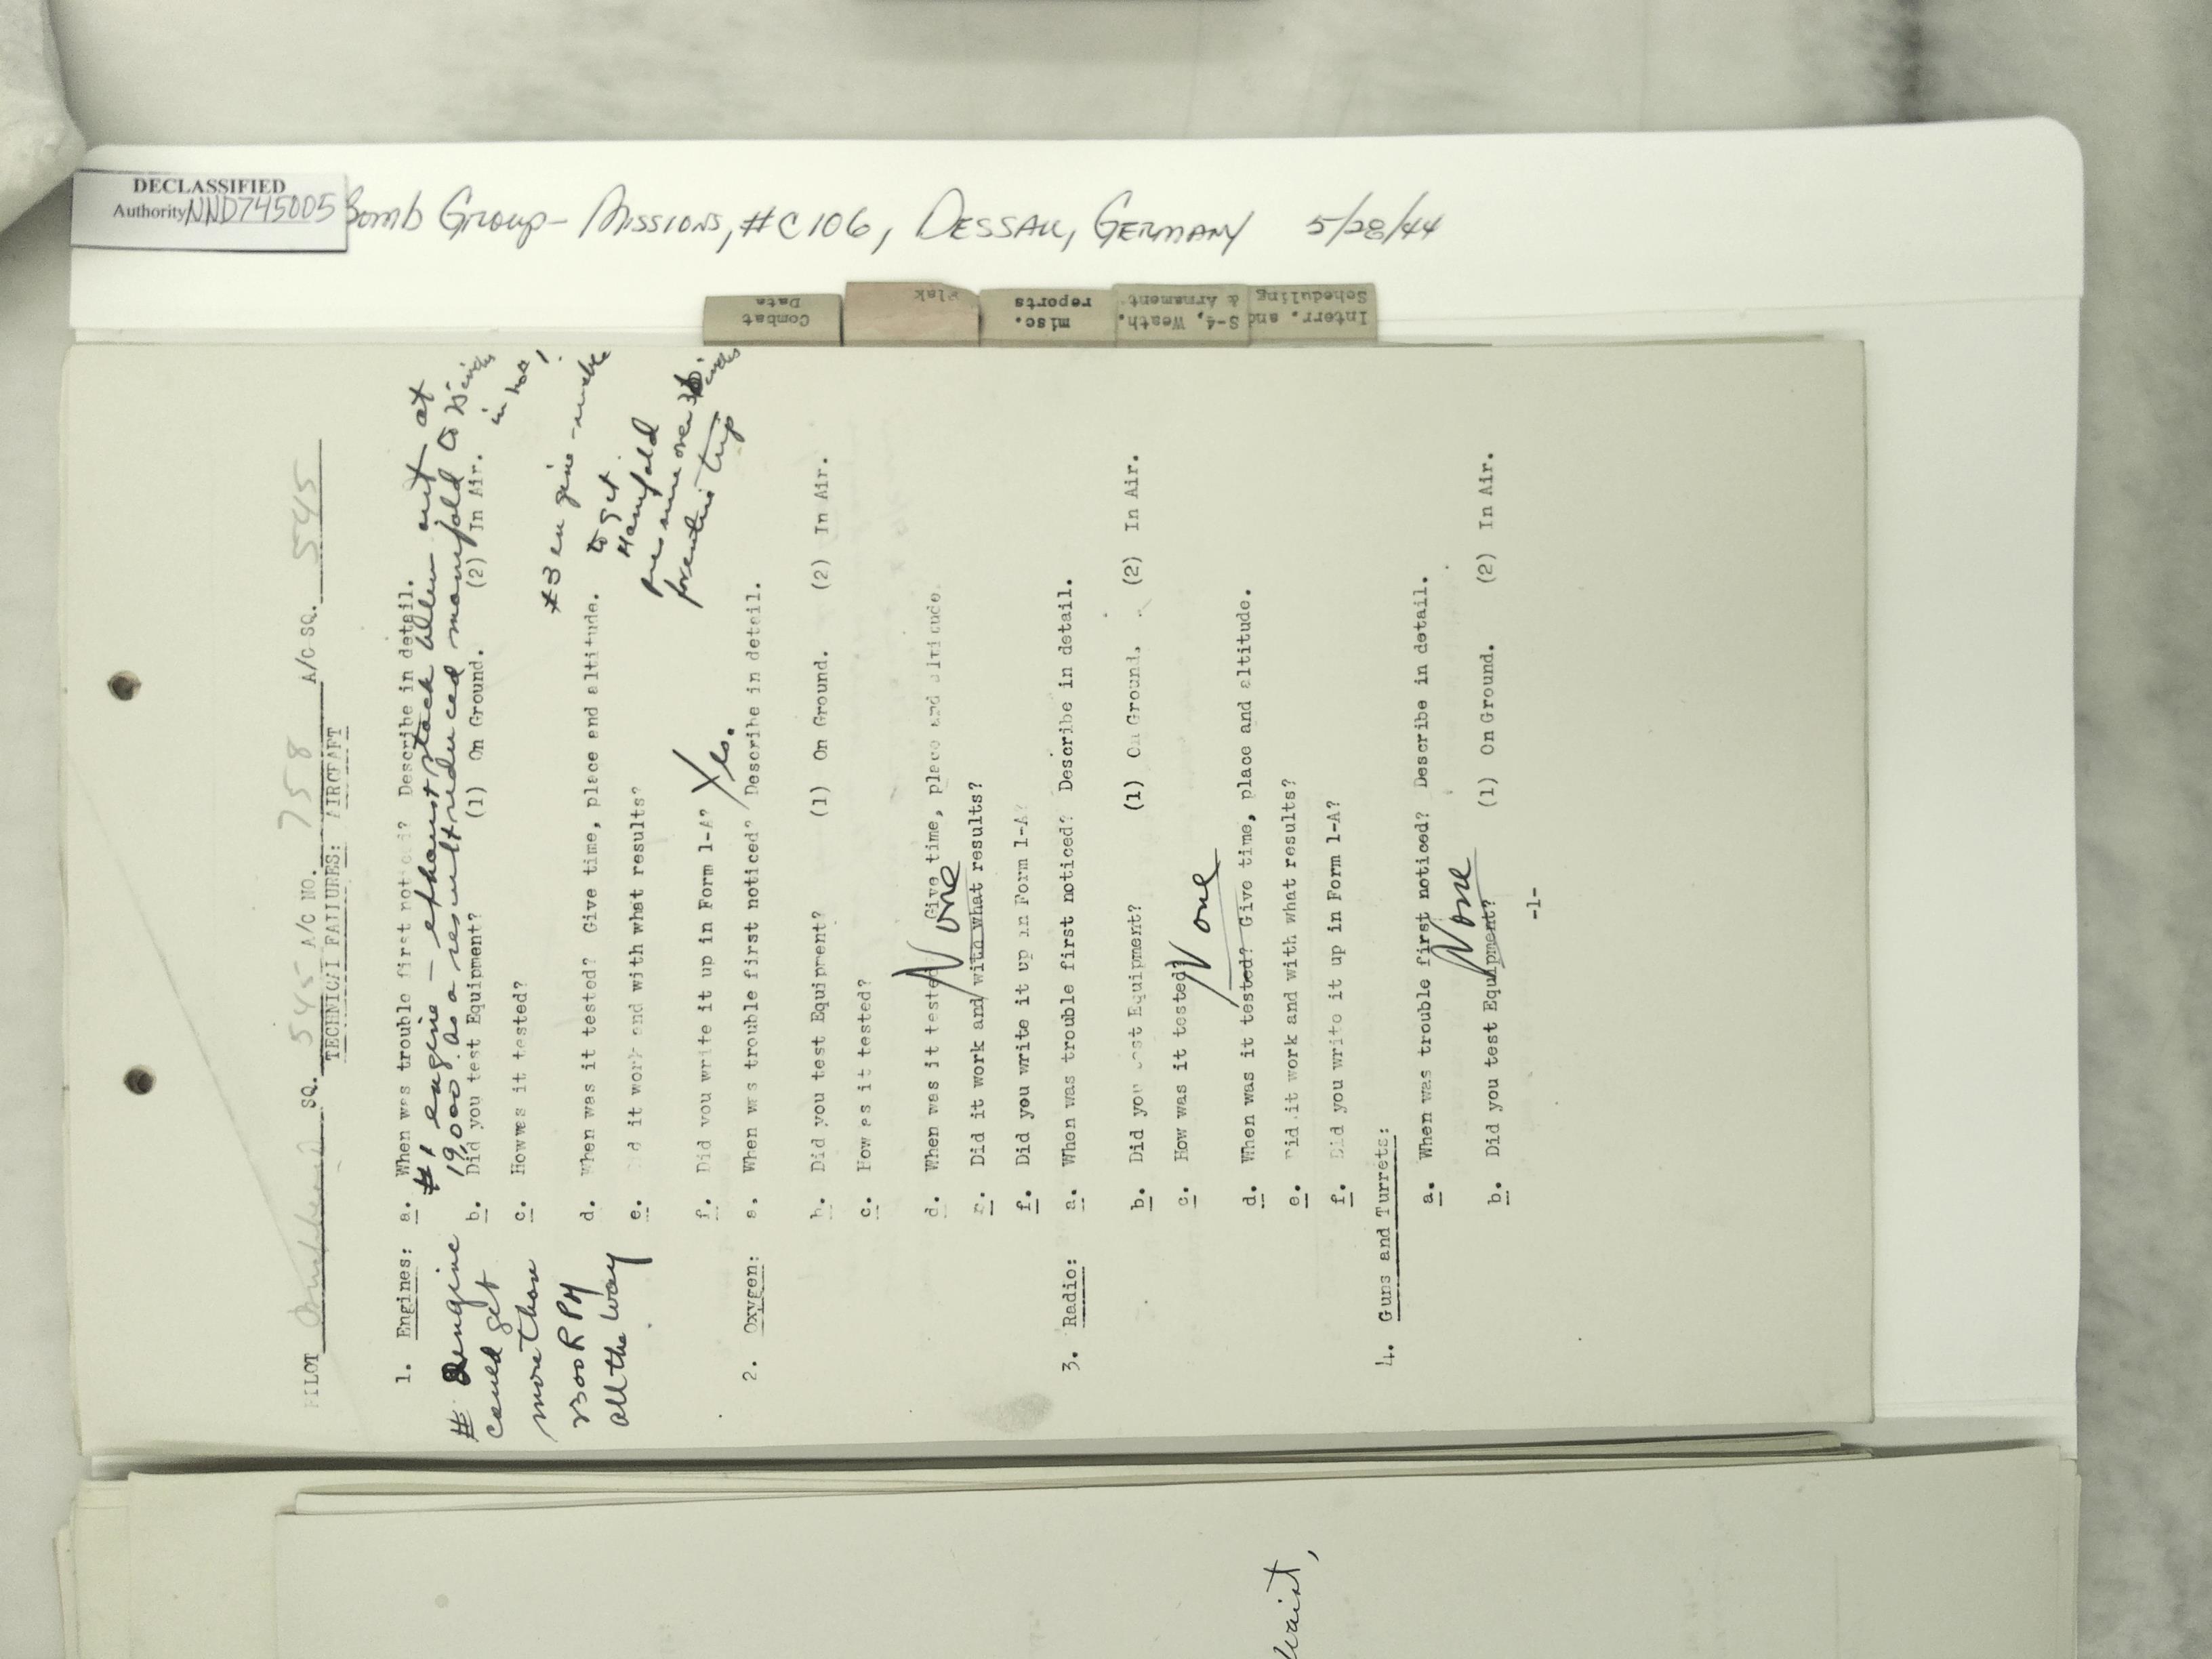 DECLASSIFIED
Authority NND745005
Bomb Group - Missions, #C106, Dessau, Germany 5/28/44
Combat
Data
Flak
misc.
reports
S-4, Weath.
& Armament
Interr. and
Scheduling
PILOT SQ. 545 A/C NO. 758 A/C SQ. 545
TECHNICAL FAILURES: AIRCRAFT
1. Engines: a. When was trouble first noticed? Describe in detail.
#1 engine - exhaust stack blew out at
19,000. As a result reduced manifold to 25 inches
b. Did you test Equipment? (1) On Ground. (2) In Air.
# 2 engine
could get
more than
2300 RPM
all the way
c. How was it tested?
#3 engine - unable
to get
Manifold
pressure over
inches
entire trip
d. When was it tested? Give time, place and altitude.
e. Did it work and with what results?
f. Did you write it up in Form 1-A? Yes.
2. Oxygen: a. When was trouble first noticed? Describe in detail.
b. Did you test Equipment? (1) On Ground. (2) In Air.
c. How as it tested?
None
d. When was it tested Give time, place and altitude.
e. Did it work and with what results?
f. Did you write it up in Form 1-A?
3. Radio: a. When was trouble first noticed? Describe in detail.
b. Did you test Equipment? (1) On Ground. (2) In Air.
c. How was it tested?
None
d. When was it tested? Give time, place and altitude.
e. Did it work and with what results?
f. Did you write it up in Form 1-A?
4. Guns and Turrets:
a. When was trouble first noticed? Describe in detail.
None
b. Did you test Equipment? (1) On Ground. (2) In Air.
-1-